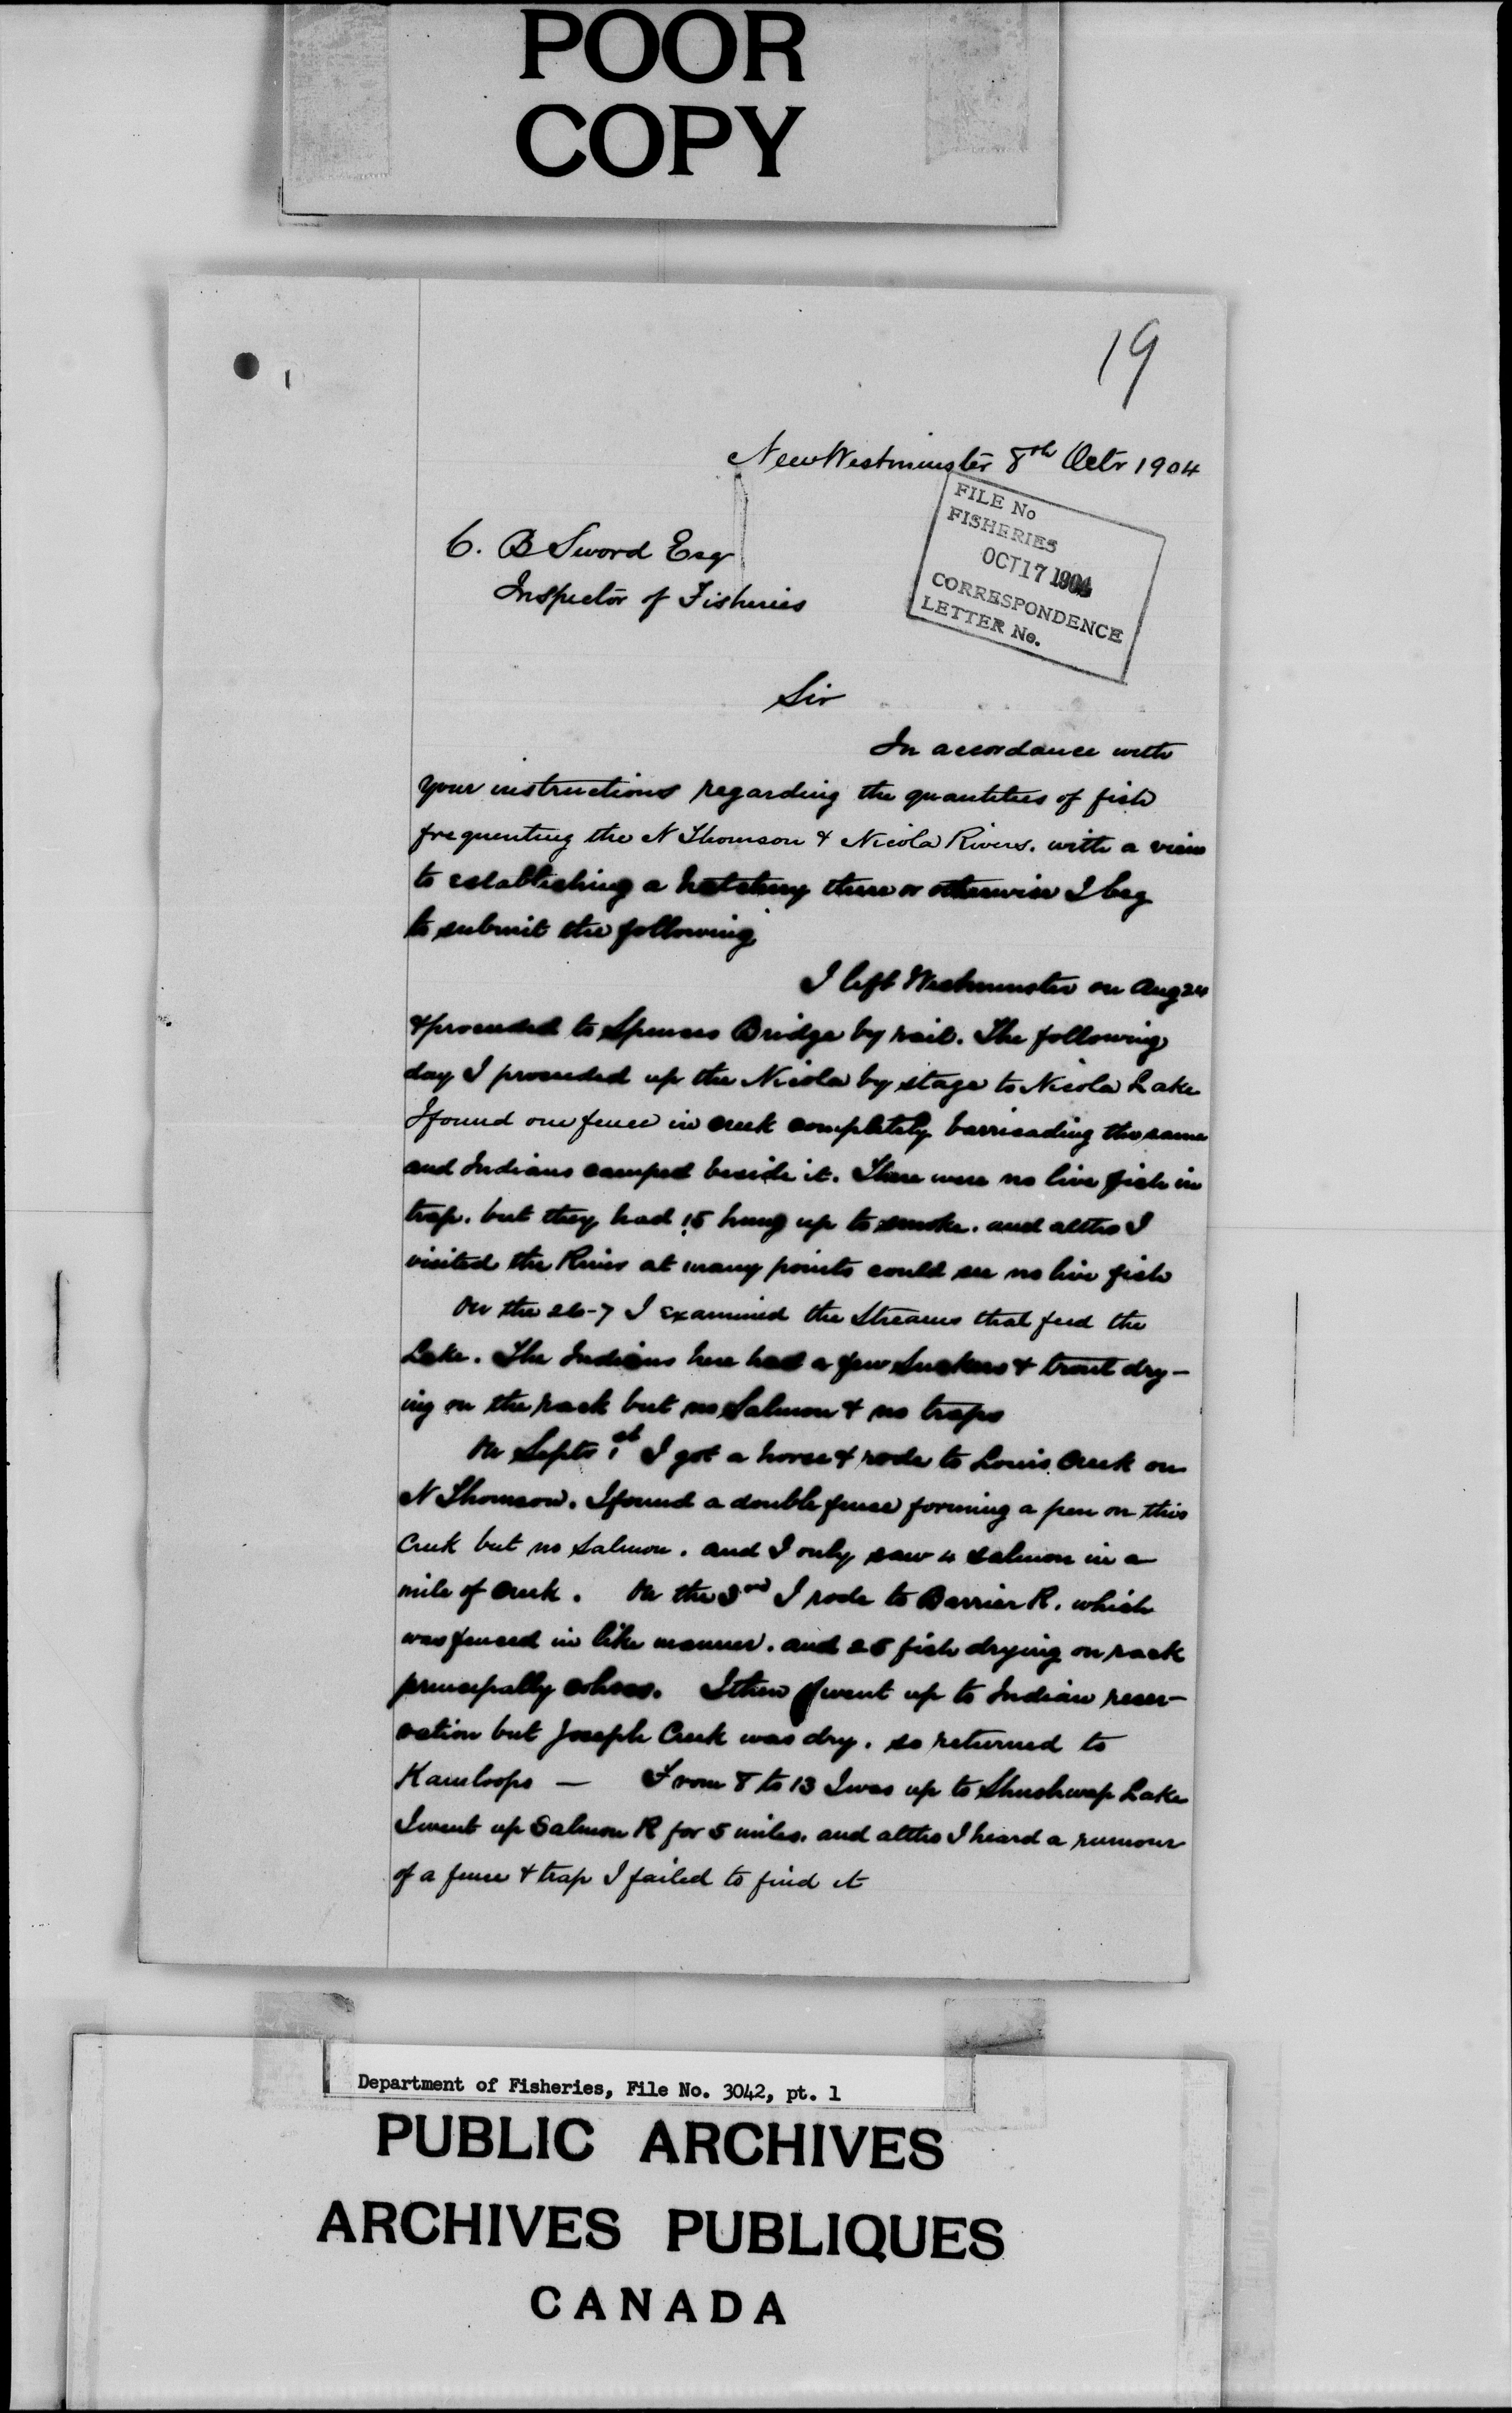 POOR
COPY
19
New Westminster 8th Octr 1904
FILE No
FISHERIES
OCT 17 1904
CORRESPONDENCE
LETTER No.
C. B Sword Esq
Inspector of Fisheries
Sir
In accordance with
your instructions regarding the quantities of fish
frequenting the N Thomson & Nicola Rivers. with a view
to establishing a hatchery there or otherwise I beg
to submit the following
I left Westminster on Aug 24
& proceeded to Spences Bridge by rail. The following
day I proceeded up the Nicola by stage to Nicola Lake
I found one fence in creek completely barricading the same
and Indians camped beside it. There were no live fish in
trap. but they had 15 hung up to smoke. and altho I
visited the River at many points could see no live fish
On the 26-7 I examined the Streams that feed the
Lake. The Indians here had a few Suckers & trout dry-
ing on the rack but no Salmon & no traps
On Septr 1st I got a horse & rode to Louis Creek on
N Thomson. I found a double fence forming a pen on this
Creek but no Salmon. and I only saw 4 salmon in a
mile of creek. On the 3rd I rode to Barrier R. which
was fenced in like manner. and 26 fish drying on rack
principally cohoes. I then went up to Indian reser-
vation but Joseph Creek was dry. so returned to
Kamloops — From 8 to 13 I was up to Shushwap Lake
I went up Salmon R for 5 miles. and altho I heard a rumour
of a fence & trap I failed to find it
Department of Fisheries, File No. 3042, pt. 1
PUBLIC ARCHIVES
ARCHIVES PUBLIQUES
CANADA